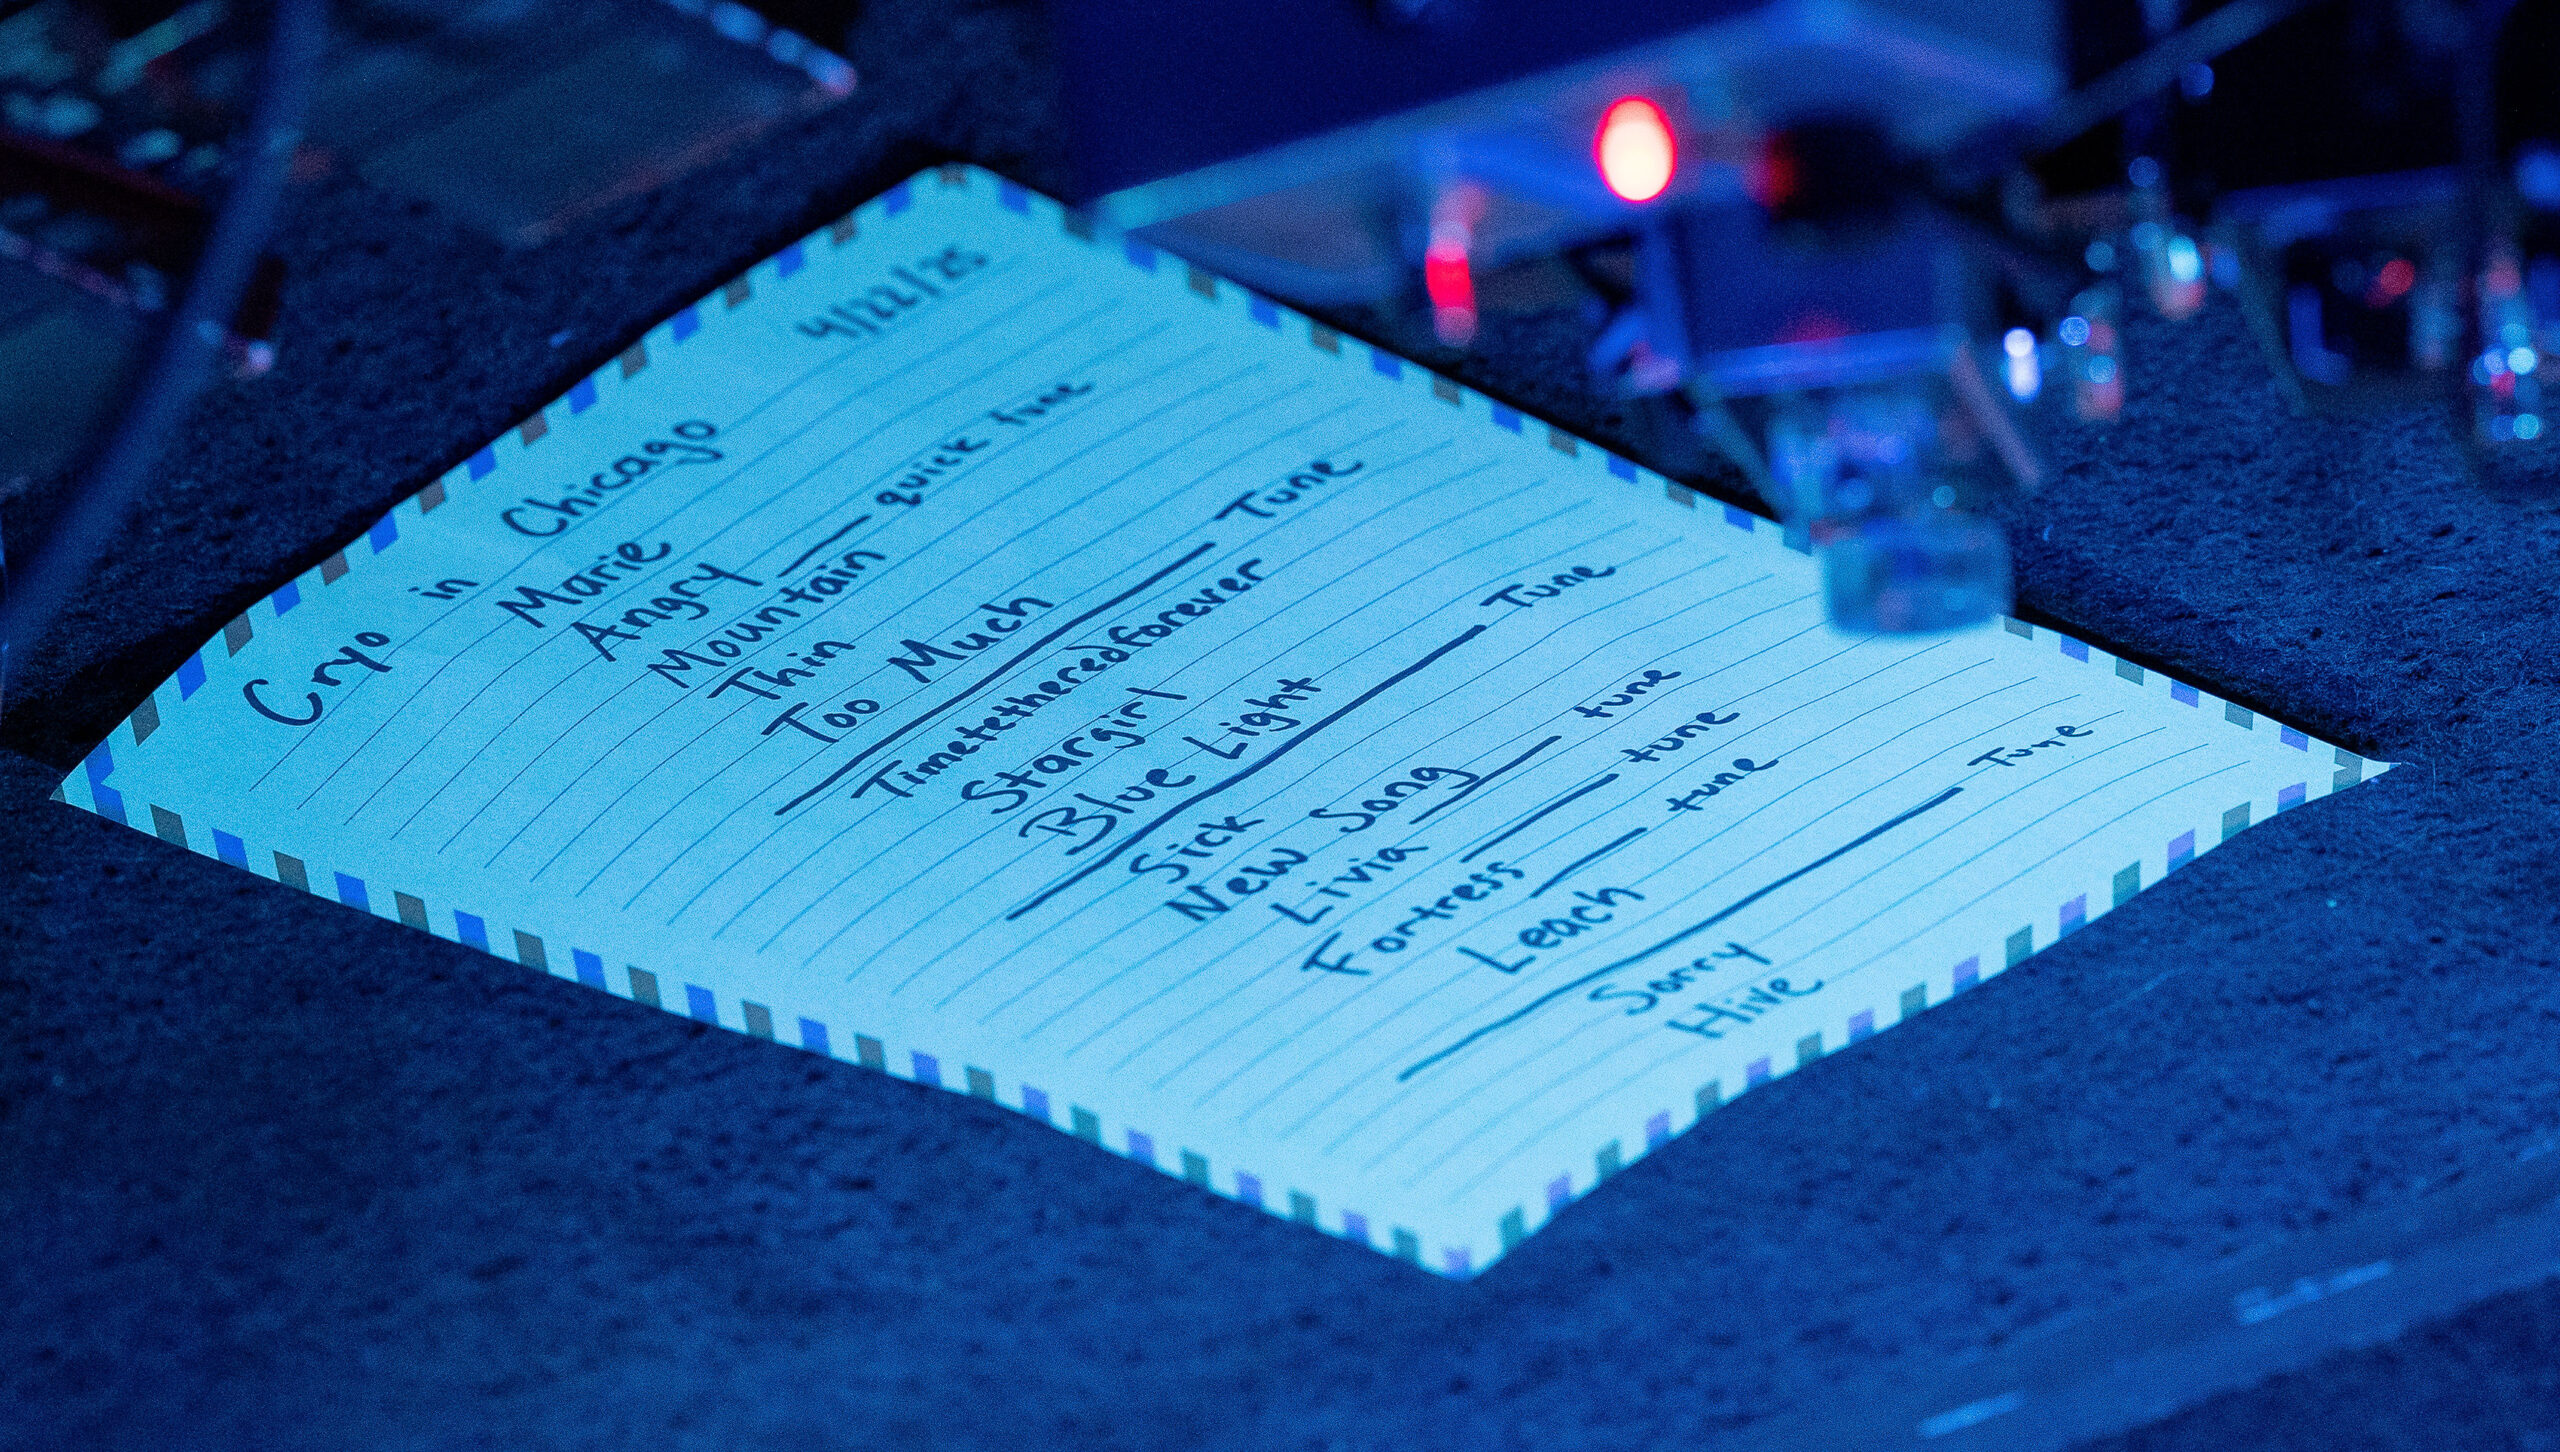 Cryo in Chicago 4/22/25
Marie
Angry — quick tune
Mountain
Thin
Too Much
Tune
Timetetheredforever
Stargirl
Blue Light
Tune
Sick
New Song — tune
Livia — tune
Fortress — tune
Leach
Tune
Sorry
Hive